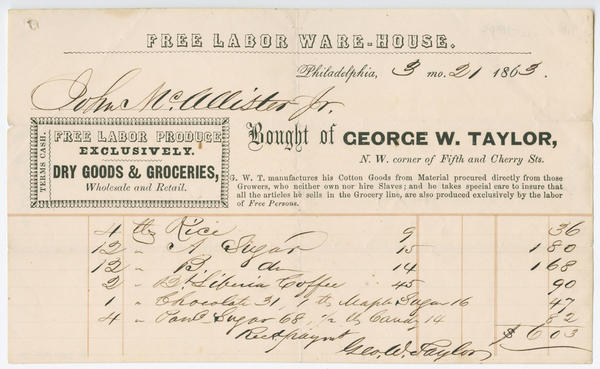 FREE LABOR WARE-HOUSE.
Philadelphia, 3 mo. 21 1863.
John McAllister Jr.
TERMS CASH.
FREE LABOR PRODUCE
EXCLUSIVELY.
DRY GOODS & GROCERIES,
Wholesale and Retail.
Bought of GEORGE W. TAYLOR,
N. W. corner of Fifth and Cherry Sts.
G. W. T. manufactures his Cotton Goods from Material procured directly from those
Growers, who neither own nor hire Slaves; and he takes special care to insure that
all the articles he sells in the Grocery line, are also produced exclusively by the labor
of Free Persons.
4 lb Rice 9 36
12 " A Sugar 15 180
12 " B do 14 168
2 " Liberia Coffee 45 90
1 " Chocolate 31, 1 lb Maple Sugar 16 47
4 " Sugar 68 1/2 lb Candy 14 82
Recd paymt $ 603
Geo. W. Taylor